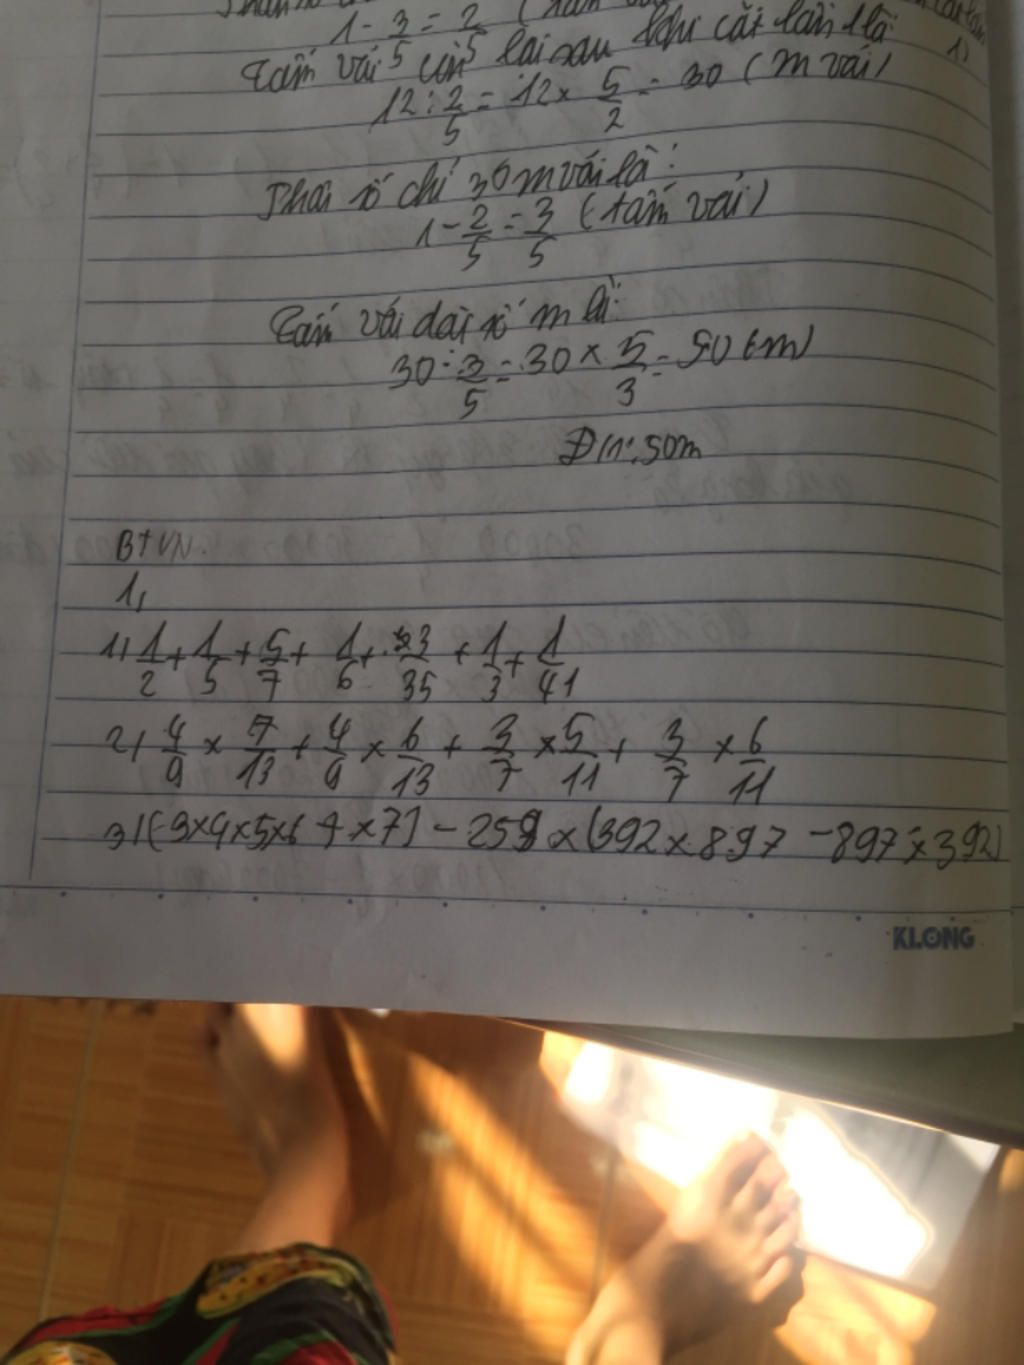 1 - 3/5 = 2/5
Tấm vải còn lại sau khi cắt lần 1 là
1)
12 : 2/5 = 12 × 5/2 = 30 (m vải)
Phân số chỉ 30 m vải là:
1 - 2/5 = 3/5 (tấm vải)
Tấm vải dài số m là:
30 : 3/5 = 30 × 5/3 = 50 (m)
Đ/s: 50m
BTVN.
1,
1) 1/2 + 1/5 + 5/7 + 1/6 + 3/35 + 1/3 + 1/41
2) 4/9 × 7/13 + 4/9 × 6/13 + 3/7 × 5/11 + 3/7 × 6/11
3) (3×4×5×6 + ×7) - 259 × (392 × 897 - 897 × 392)
KLONG